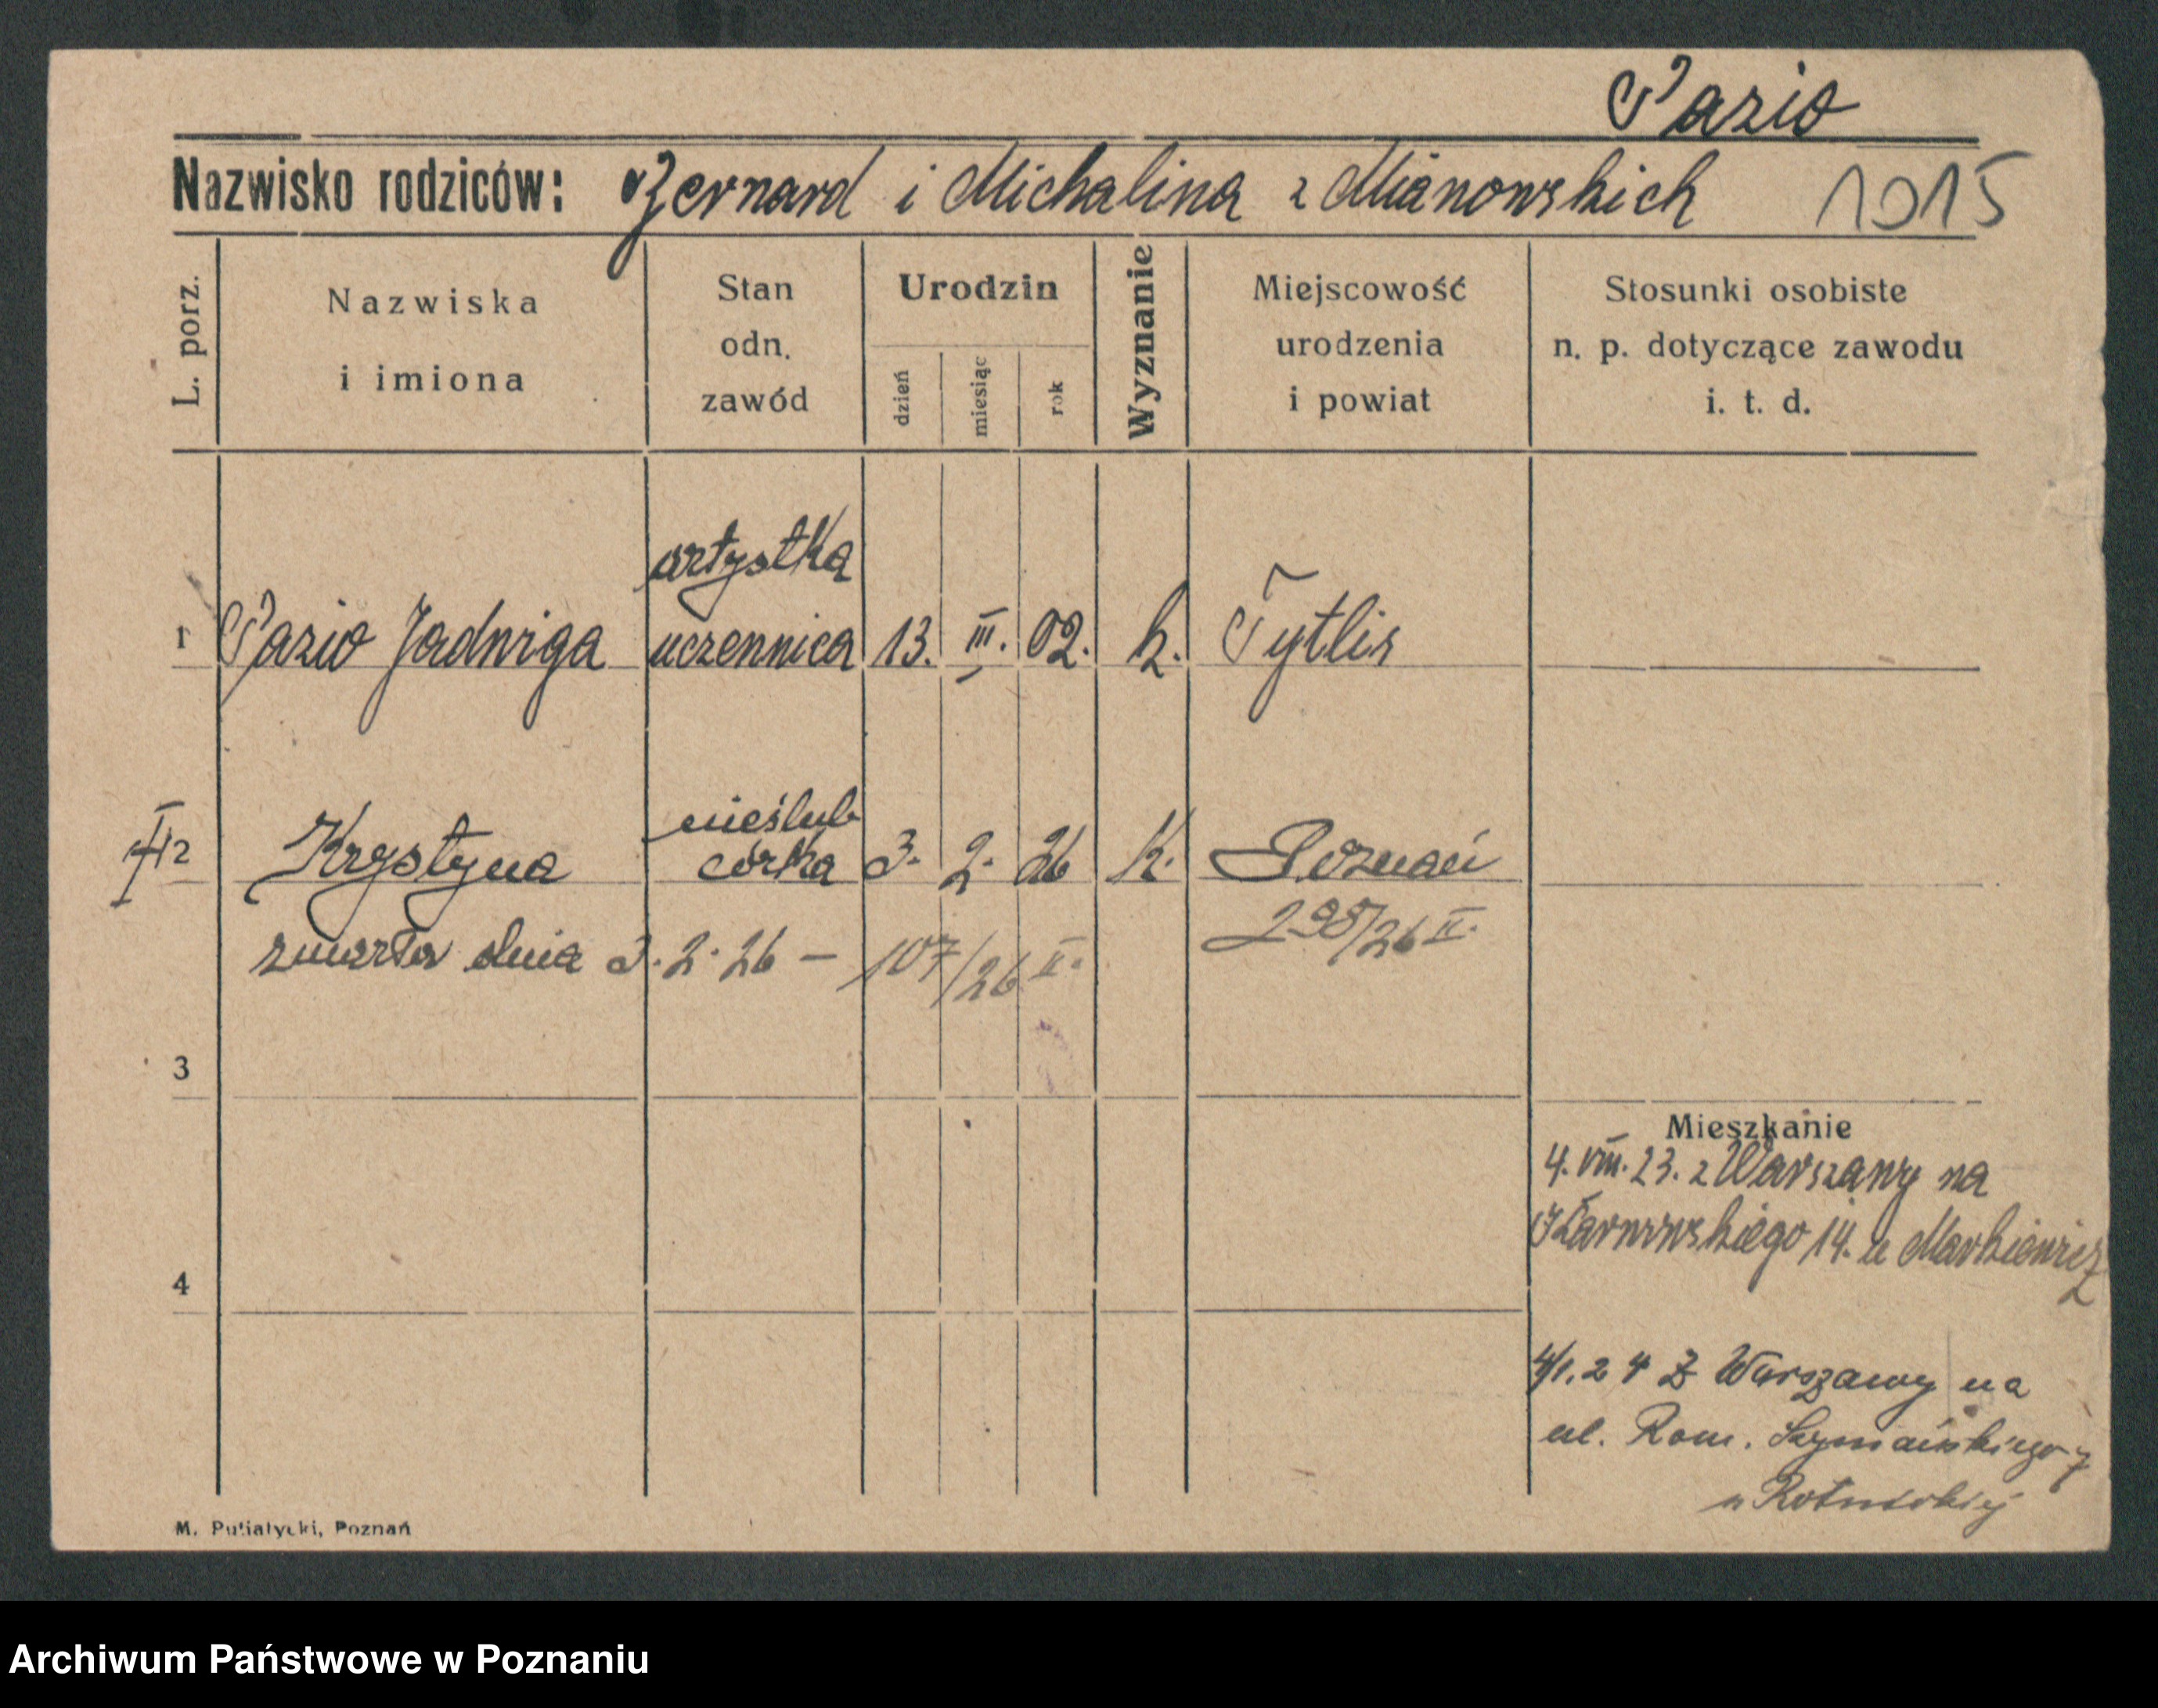 Pazio
Nazwisko rodziców: Bernard i Michalina z Mianowskich 1915
L. porz.
Nazwiska
i imiona
Stan
odn.
zawód
Urodzin
dzień
miesiąc
rok
Wyznanie
Miejscowość
urodzenia
i powiat
Stosunki osobiste
n. p. dotyczące zawodu
i. t. d.
artystka
1 Pazio Jadwiga uczennica 13. III. 02. k. Tytlis
nieślub
2 Krystyna córka 3. 2. 26 K. Poznań
298/26 II.
zmarła dnia 3. 2. 26 – 107/26 II.
3
Mieszkanie
4. VIII. 23. z Warszawy na
14. u Markiewicz
4
4/1. 24 z Warszawy na
ul. Rom. Szymańskiego 7
u
M. Putiatycki, Poznań
Archiwum Państwowe w Poznaniu